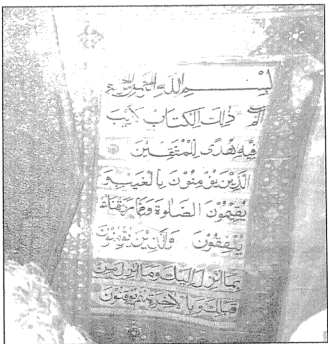 بسم الله الرحمن الرحيم
الم ذلك الكتاب لا ريب
فيه هدى للمتقين
الذين يؤمنون بالغيب و
يقيمون الصلوة ومما رزقناهم
ينفقون والذين يؤمنون
بما انزل اليك وما انزل من
قبلك وبالاخرة هم يوقنون